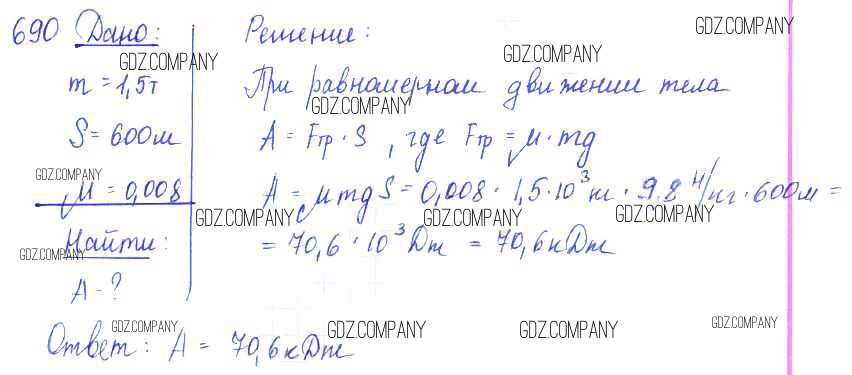 690 Дано: Решение:
m = 1,5т При равномерном движении тела
S = 600м A = Fтр · S , где Fтр = μ · mg
μ = 0,008 A = μmgS = 0,008 · 1,5·10³ кг · 9.8 Н/кг · 600м =
Найти: = 70,6 · 10³ Дж = 70,6 кДж
A - ?
Ответ: A = 70,6 кДж
GDZ.COMPANY
GDZ.COMPANY
GDZ.COMPANY
GDZ.COMPANY
GDZ.COMPANY
GDZ.COMPANY
GDZ.COMPANY
GDZ.COMPANY
GDZ.COMPANY
GDZ.COMPANY
GDZ.COMPANY
GDZ.COMPANY
GDZ.COMPANY